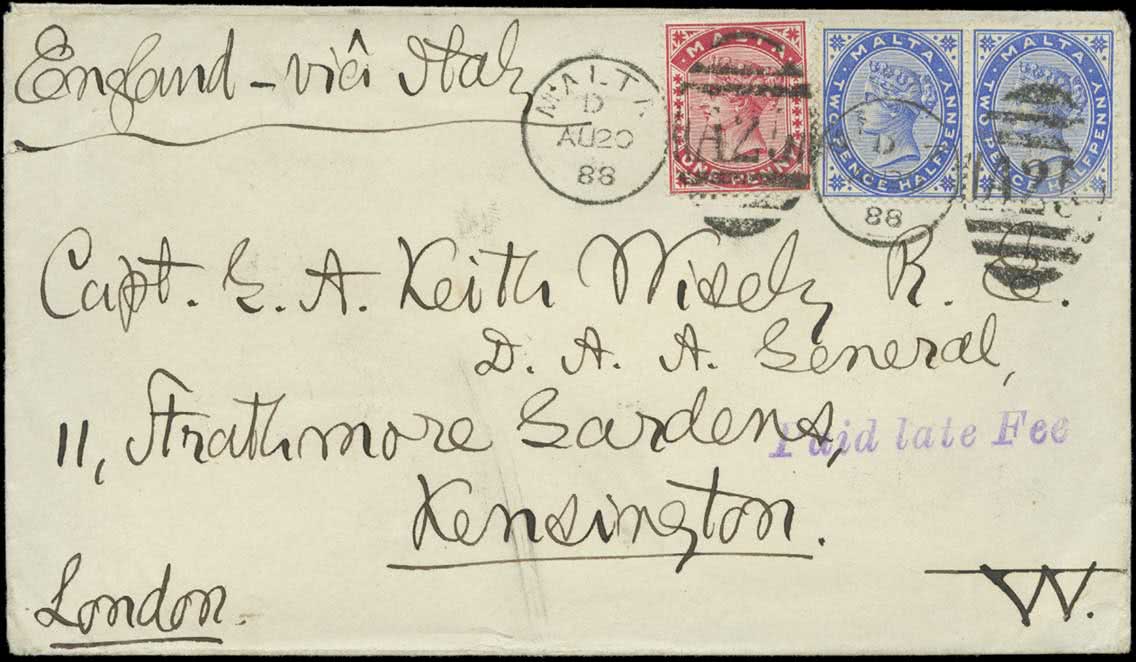 England - viâ Italy
MALTA
D
AU 20
88
MALTA
ONE PENNY
A25
MALTA
TWO PENCE HALFPENNY
D
88
MALTA
TWO PENCE HALFPENNY
A25
Capt. G. A. Keith Wisely R. E.
D. A. A. General,
11, Strathmore Gardens,
Paid late Fee
Kensington.
London.
W.